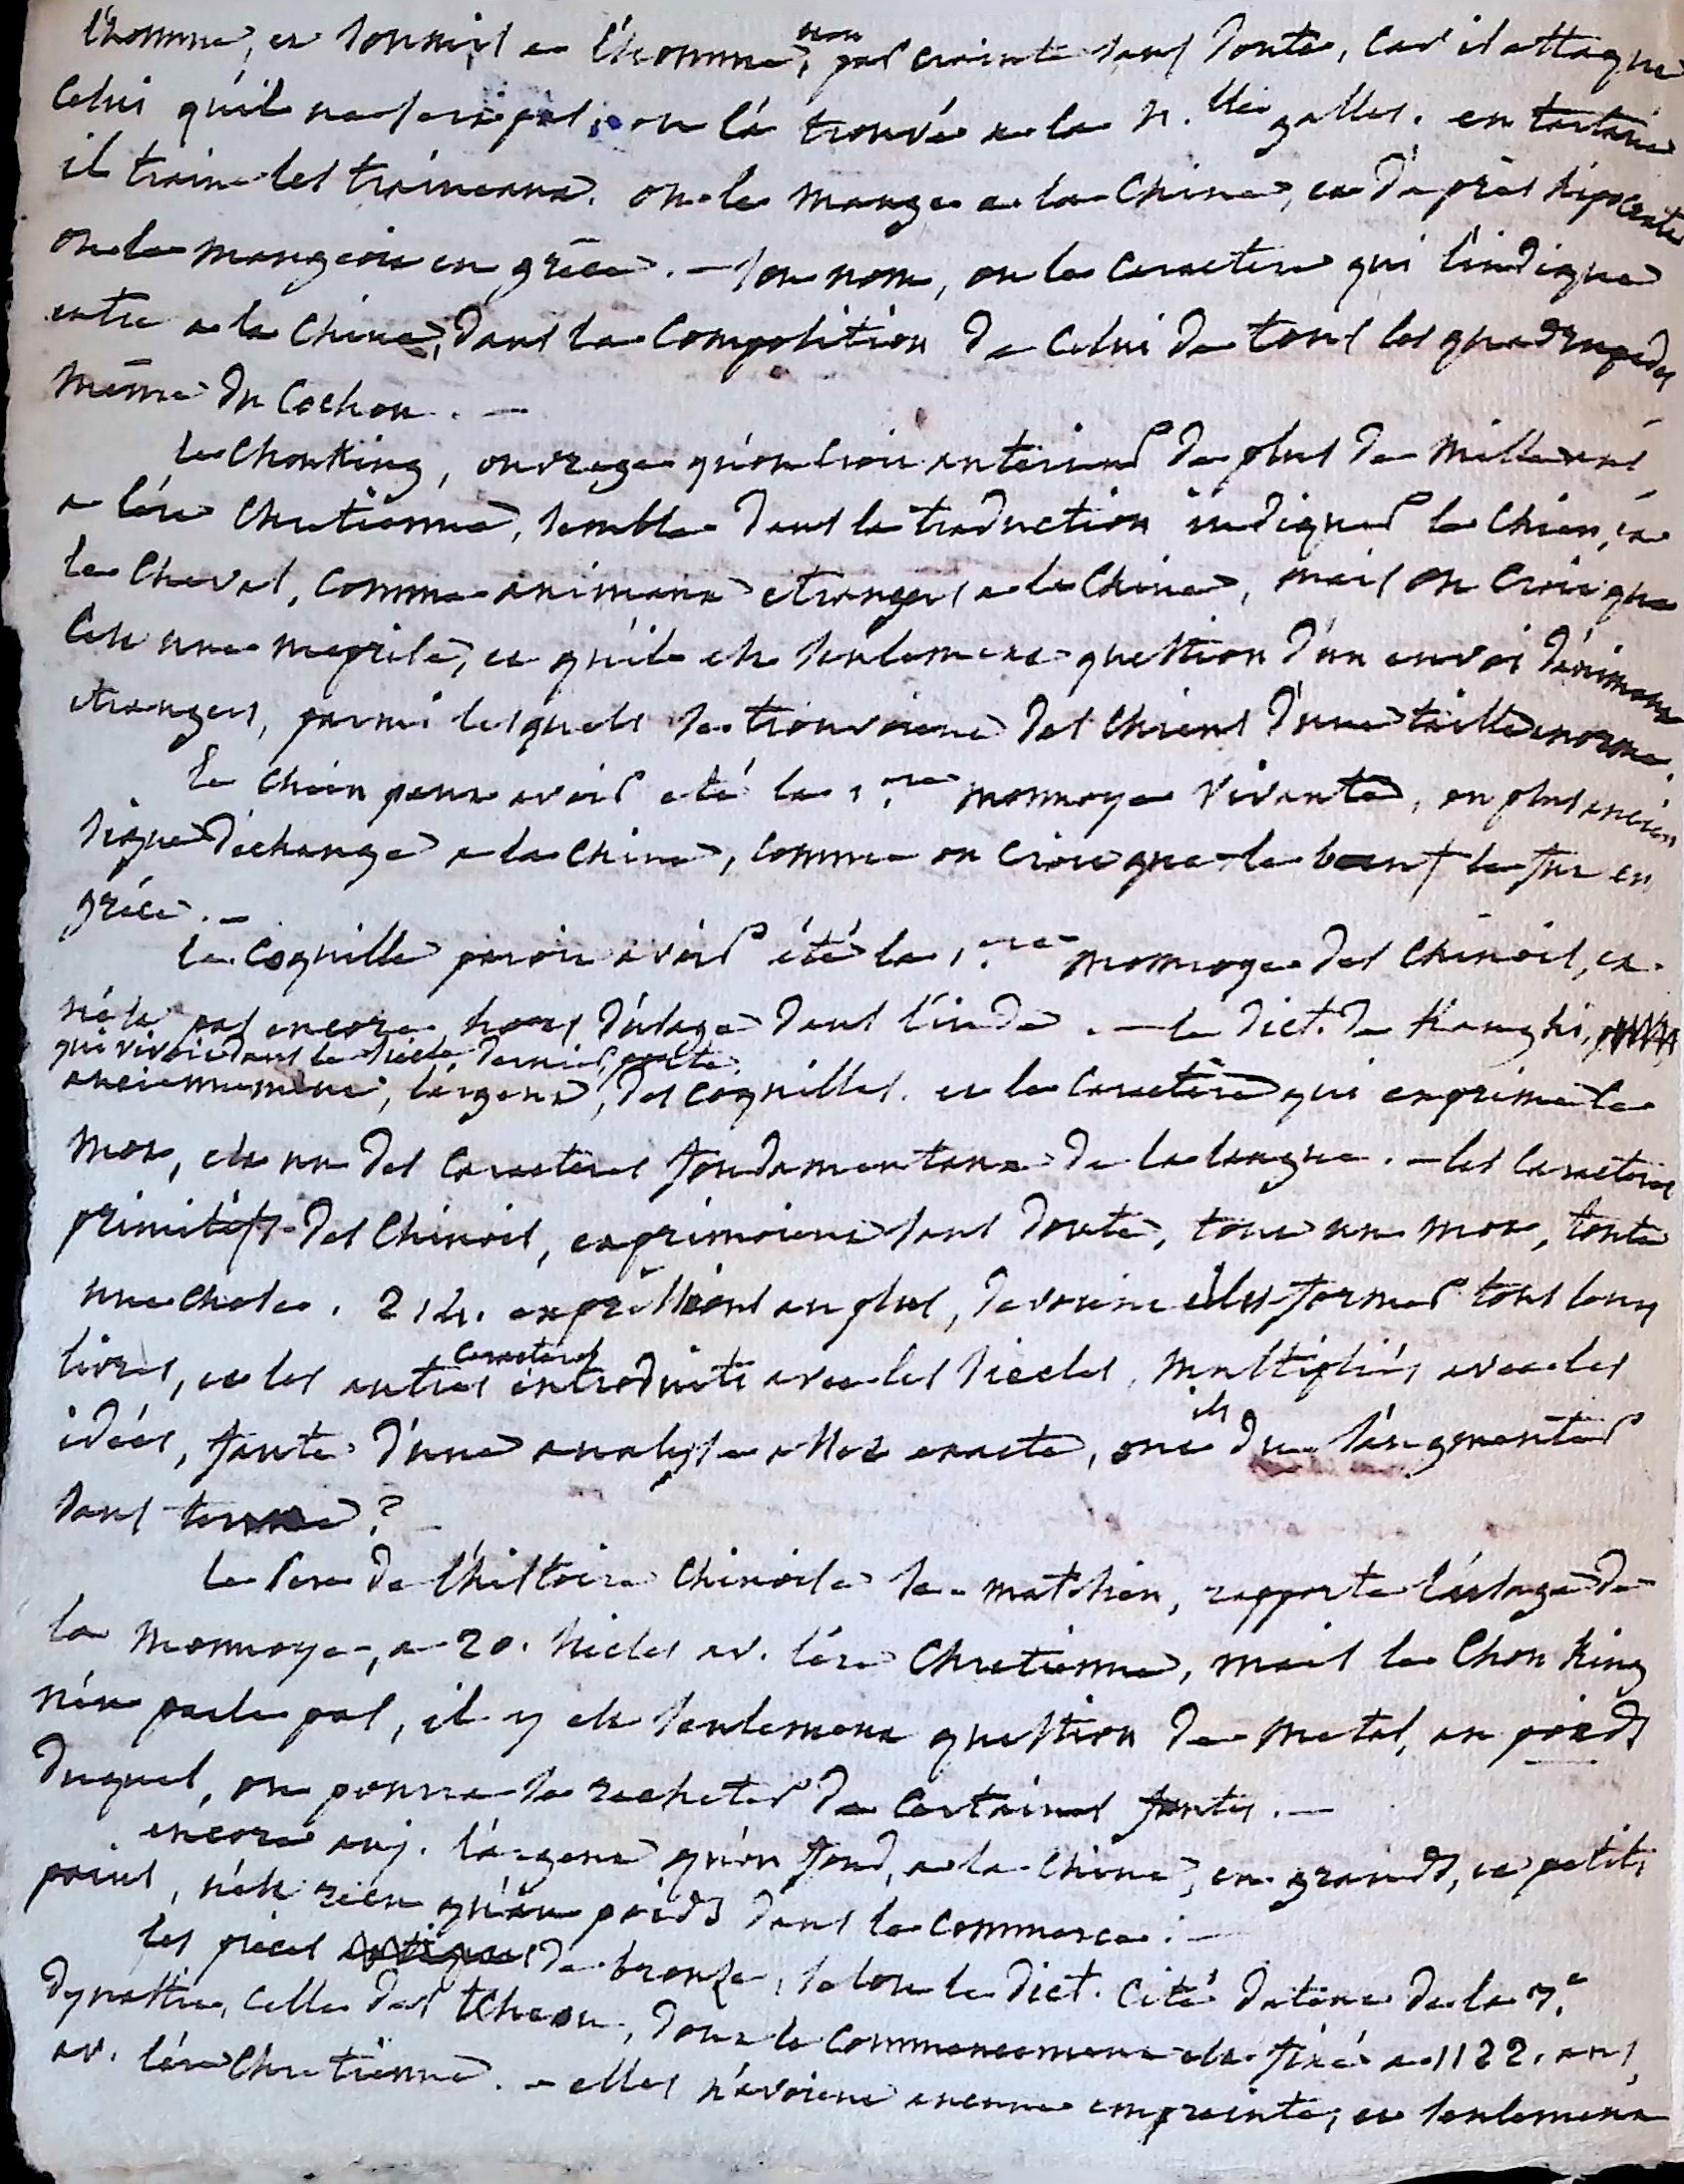 l'homme, et soumis a l'homme, non par crainte sans doute, car il attaque
celui qu'il ne sert pas ; on l'a trouvé a la n.lle galles. en tartarie
il traine les traineaux. on le mange a la Chine, et d'après hipocrate
on le mangeoit en grèce. — son nom, ou le caractere qui l'indique
entre a la Chine, dans la composition de celui de tous les quadrupedes
même du Cochon. —
le Chouking, ouvrage qu'on croit anterieur de plus de mille ans
a l'ére Chretienne, semble dans la traduction indiquer le Chien, et
le Cheval, comme animaux etrangers a la Chine, mais on croit que
c'est une meprise, et qu'il est seulement question d'un envoi d'animaux
etrangers, parmi lesquels se trouvoient des Chiens d'une taille enorme.
le Chien peut avoir eté la 1.ere monnoye vivante, ou plus ancien
signe d'échange a la Chine, comme on croit que le boeuf le fut en
gréce. —
la Coquille paroit avoir été la 1.ere monnoye des Chinois, et
n'est pas encore hors d'usage dans l'inde. — le dict. de Kanghi,
qui vivoit dans le siècle dernier, porte,
anciennement, l'argent, des coquilles. et le caractère qui exprime le
mot, est un des caracteres fondamentaux de la langue. — les caracteres
primitifs des Chinois, exprimoient sans doute, tout un mot, toute
une chose. 214. expressions au plus, devoient elles former tous leurs
livres, et les autres caracteres introduits avec les siecles, multipliés avec les
idées, faute d'une analyse assez exacte, ont ils du s'augmenter
sans terme ?
le Pere de l'histoire Chinoise Se-matsien, rapporte l'usage de
la monnoye, a 20. siecles av. l'ére Chretienne, mais le Chou King
n'en parle pas, il y est seulement question de metal, au poids
duquel, on pouvoit se racheter de certaines fautes. —
encore auj. l'argent qu'on fond, a la Chine, en grands, et petits
pains, n'est rien qu'au poids dans le commerce. —
les pieces de bronze, selon le dict. cité datent de la 3.e
dynastie, celle des tcheou, dont le commencement est fixé a 1122. ans,
av. l'ére Chretienne. — elles n'avoient aucune empreinte, et seulement